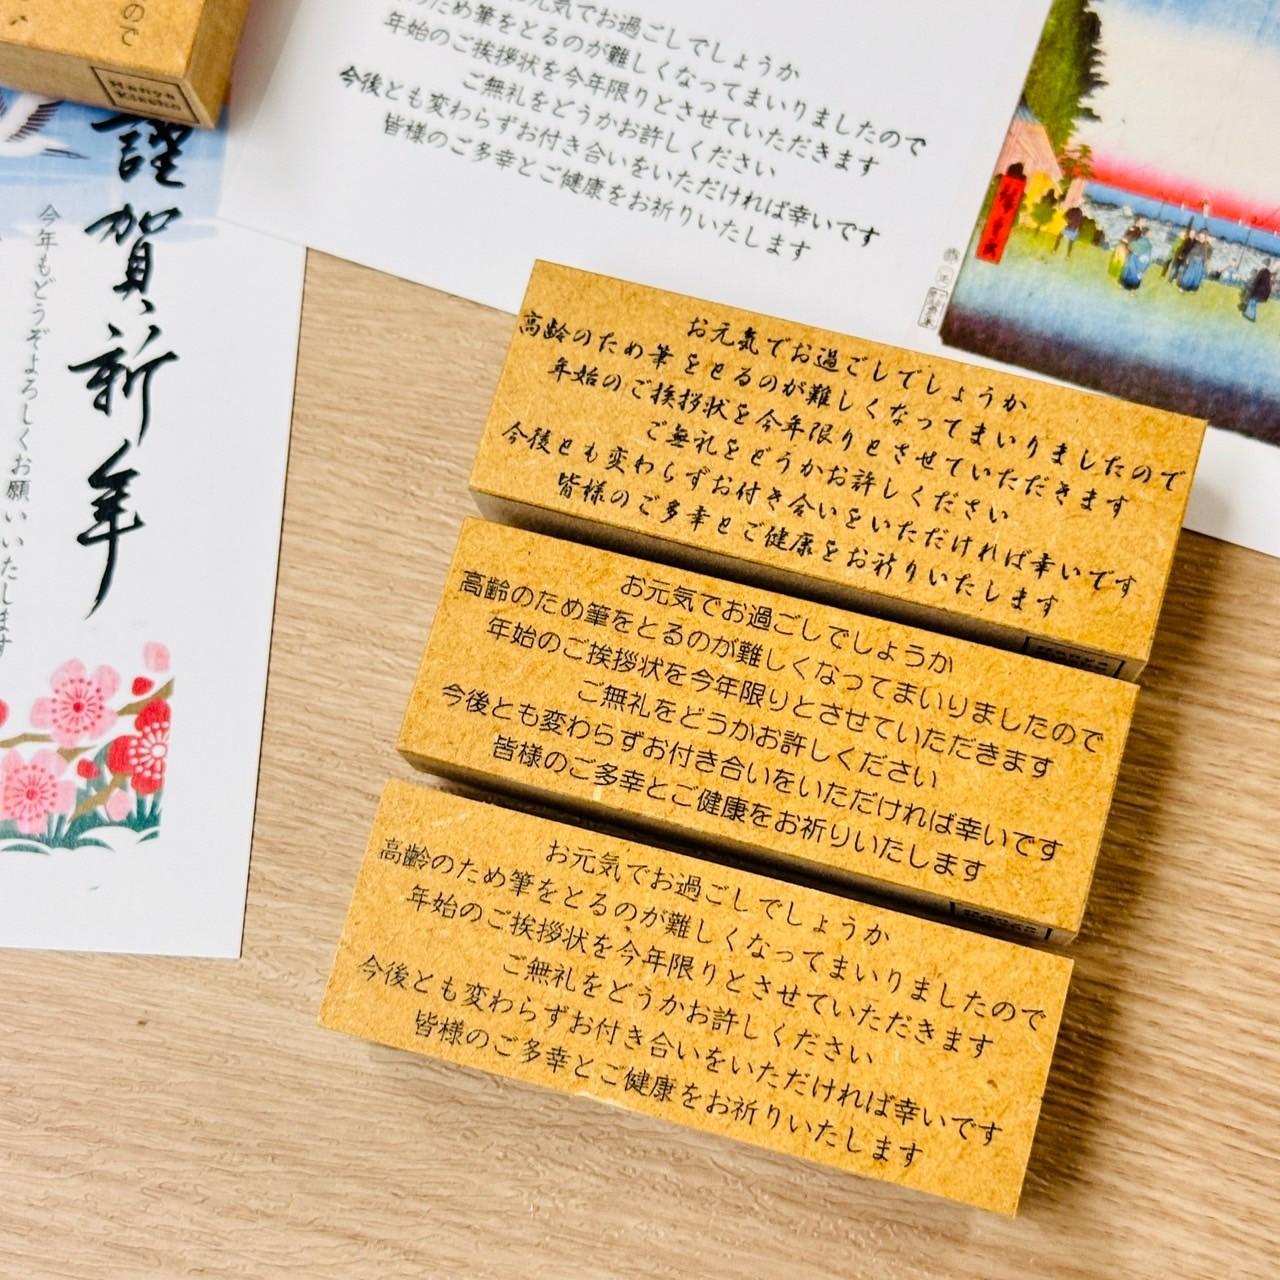 ので
Hanko
Kiseho
謹賀新年
今年もどうぞよろしくお願いいたします
お元気でお過ごしでしょうか
ため筆をとるのが難しくなってまいりましたので
年始のご挨拶状を今年限りとさせていただきます
ご無礼をどうかお許しください
今後とも変わらずお付き合いをいただければ幸いです
皆様のご多幸とご健康をお祈りいたします
お元気でお過ごしでしょうか
高齢のため筆をとるのが難しくなってまいりましたので
年始のご挨拶状を今年限りとさせていただきます
ご無礼をどうかお許しください
今後とも変わらずお付き合いをいただければ幸いです
皆様のご多幸とご健康をお祈りいたします
お元気でお過ごしでしょうか
高齢のため筆をとるのが難しくなってまいりましたので
年始のご挨拶状を今年限りとさせていただきます
ご無礼をどうかお許しください
今後とも変わらずお付き合いをいただければ幸いです
皆様のご多幸とご健康をお祈りいたします
お元気でお過ごしでしょうか
高齢のため筆をとるのが難しくなってまいりましたので
年始のご挨拶状を今年限りとさせていただきます
ご無礼をどうかお許しください
今後とも変わらずお付き合いをいただければ幸いです
皆様のご多幸とご健康をお祈りいたします